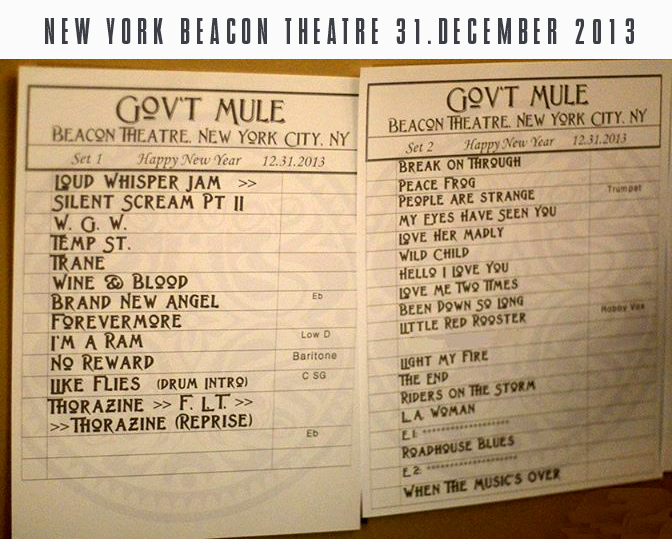 NEW YORK BEACON THEATRE 31.DECEMBER 2013
GOV'T MULE
BEACON THEATRE, NEW YORK CITY, NY
Set 1 Happy New Year 12.31.2013
LOUD WHISPER JAM >>
SILENT SCREAM PT II
W. G. W.
TEMP ST.
TRANE
WINE & BLOOD
BRAND NEW ANGEL Eb
FOREVERMORE
I'M A RAM Low D
NO REWARD Baritone
LIKE FLIES (DRUM INTRO) C SG
THORAZINE >> F. L.T. >>
>>THORAZINE (REPRISE)
Eb
GOV'T MULE
BEACON THEATRE, NEW YORK CITY, NY
Set 2 Happy New Year 12.31.2013
BREAK ON THROUGH
PEACE FROG Trumpet
PEOPLE ARE STRANGE
MY EYES HAVE SEEN YOU
LOVE HER MADLY
WILD CHILD
HELLO I LOVE YOU
LOVE ME TWO TIMES
BEEN DOWN SO LONG Robby Vox
LITTLE RED ROOSTER
LIGHT MY FIRE
THE END
RIDERS ON THE STORM
L.A. WOMAN
E.1: ********************
ROADHOUSE BLUES
E.2: ********************
WHEN THE MUSIC'S OVER